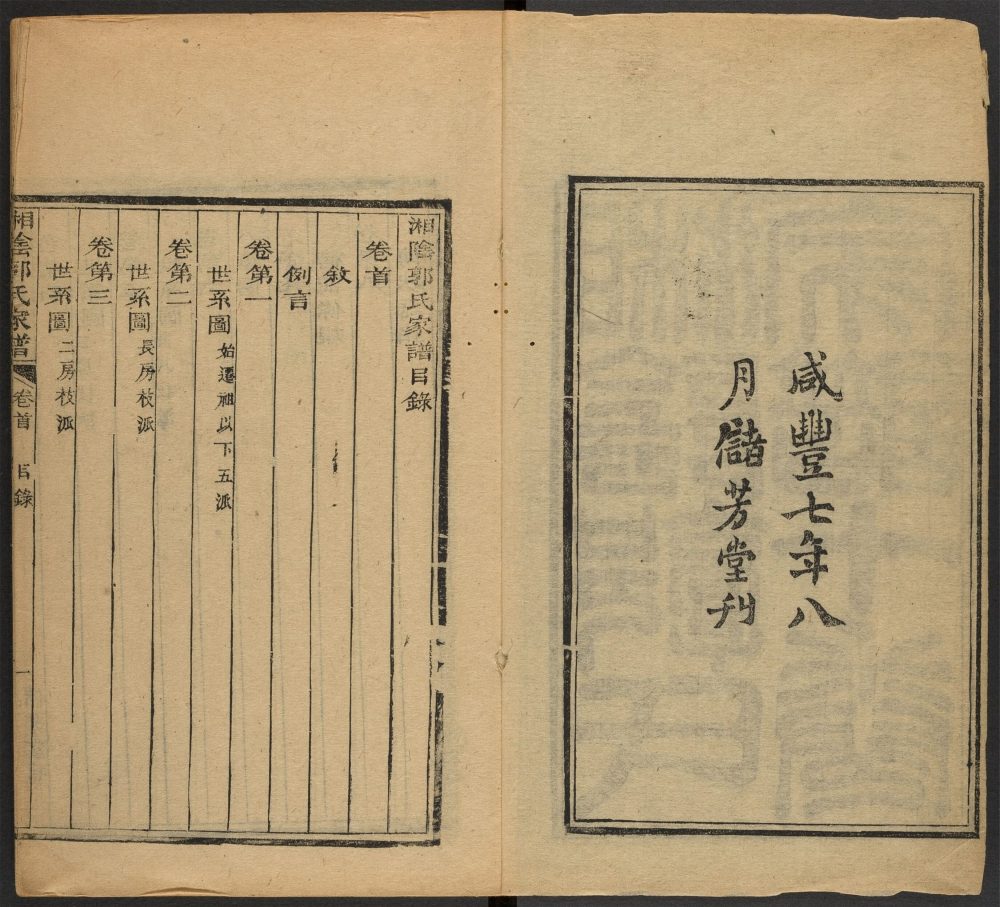 咸豐七年八
月儲芳堂刋
湘陰郭氏家譜目錄
卷首
敘
例言
卷第一
世系圖 始遷祖以下五派
卷第二
世系圖 長房枝派
卷第三
世系圖 二房枝派
湘陰郭氏家譜 卷首 目錄 一